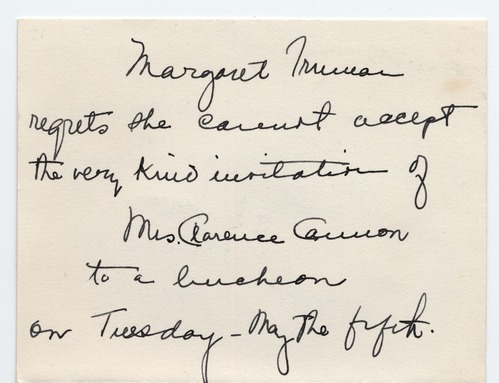 Margaret Truman
regrets she cannot accept
the very kind invitation of
Mrs. Clarence Cannon
to a luncheon
on Tuesday - May the fifth.